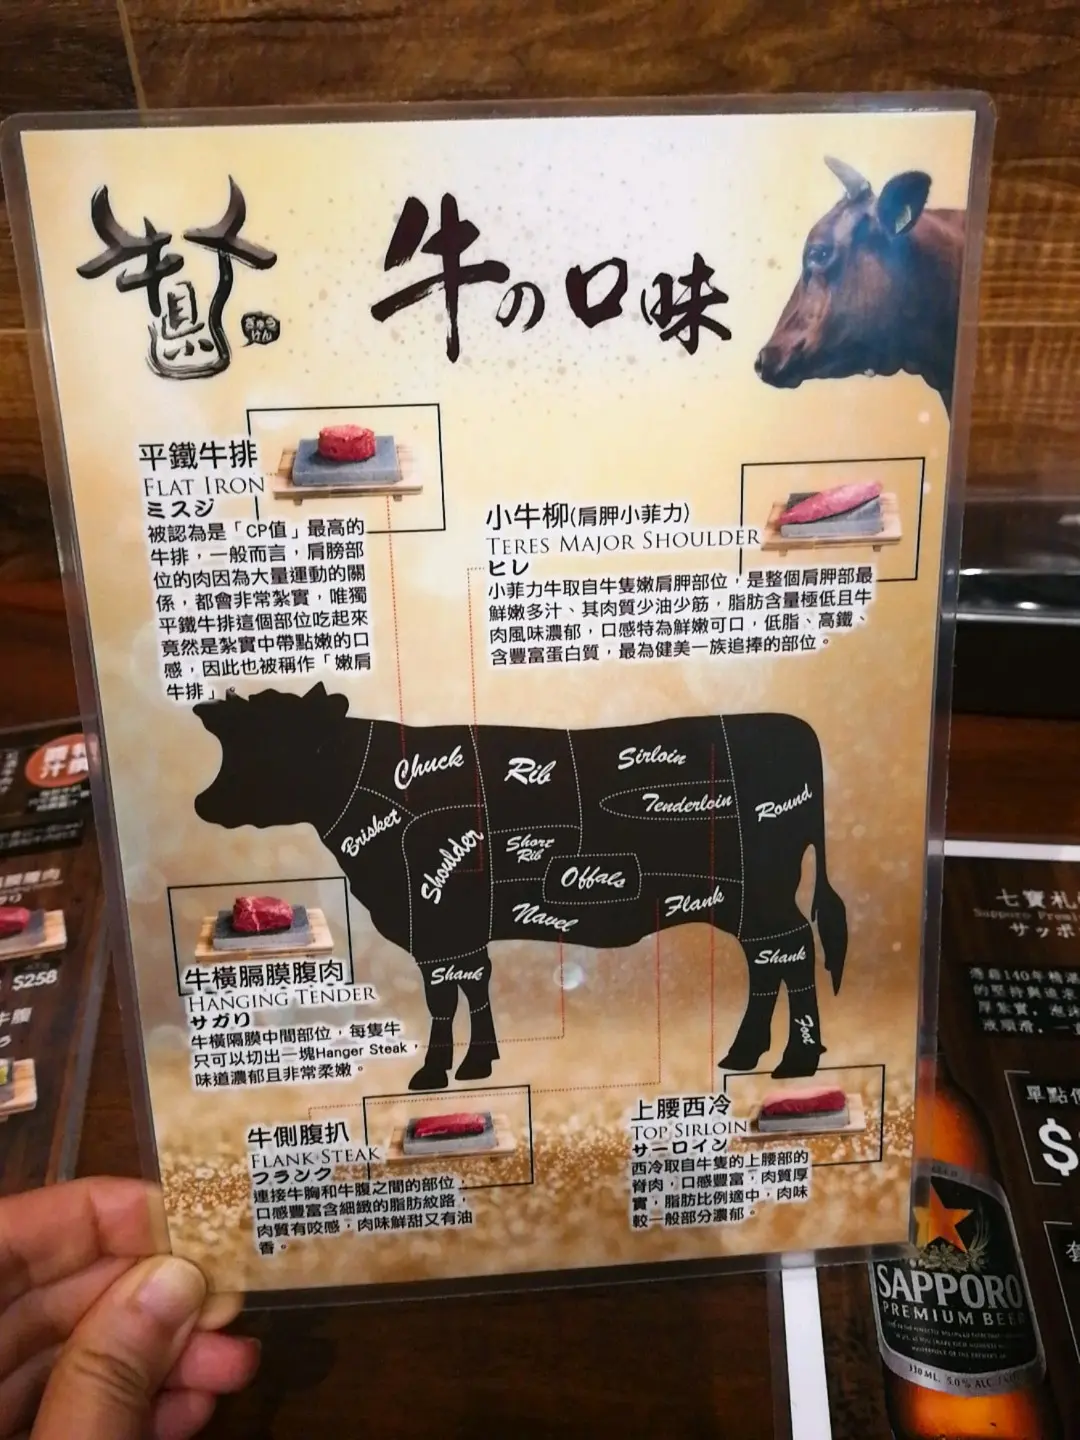 牛の口味
牛県
ぎゅう
けん
平鐵牛排
FLAT IRON
ミスジ
被認為是「CP值」最高的
牛排，一般而言，肩膀部
位的肉因為大量運動的關
係，都會非常紮實，唯獨
平鐵牛排這個部位吃起來
竟然是紮實中帶點嫩的口
感，因此也被稱作「嫩肩
牛排」。
小牛柳(肩胛小菲力)
TERES MAJOR SHOULDER
ヒレ
小菲力牛取自牛隻嫩肩胛部位，是整個肩胛部最
鮮嫩多汁、其肉質少油少筋，脂肪含量極低且牛
肉風味濃郁，口感特為鮮嫩可口，低脂、高鐵、
含豐富蛋白質，最為健美一族追捧的部位。
Chuck
Rib
Sirloin
Tenderloin
Round
Brisket
Shoulder
Short
Rib
Offals
Navel
Flank
Shank
Shank
Foot
牛橫膈膜腹肉
HANGING TENDER
サガリ
牛橫隔膜中間部位，每隻牛
只可以切出一塊Hanger Steak，
味道濃郁且非常柔嫩。
牛側腹扒
FLANK STEAK
フランク
連接牛胸和牛腹之間的部位，
口感豐富含細緻的脂肪紋路，
肉質有咬感，肉味鮮甜又有油
香。
上腰西冷
TOP SIRLOIN
サーロイン
西冷取自牛隻的上腰部的
脊肉，口感豐富，肉質厚
實，脂肪比例適中，肉味
較一般部分濃郁。
$258
牛腹
七寶札
Sapporo Premi
サッポ
憑藉140年精湛
的堅持與追求
單點價
$
SAPPORO
PREMIUM BEER
330ML. 5.0% ALC